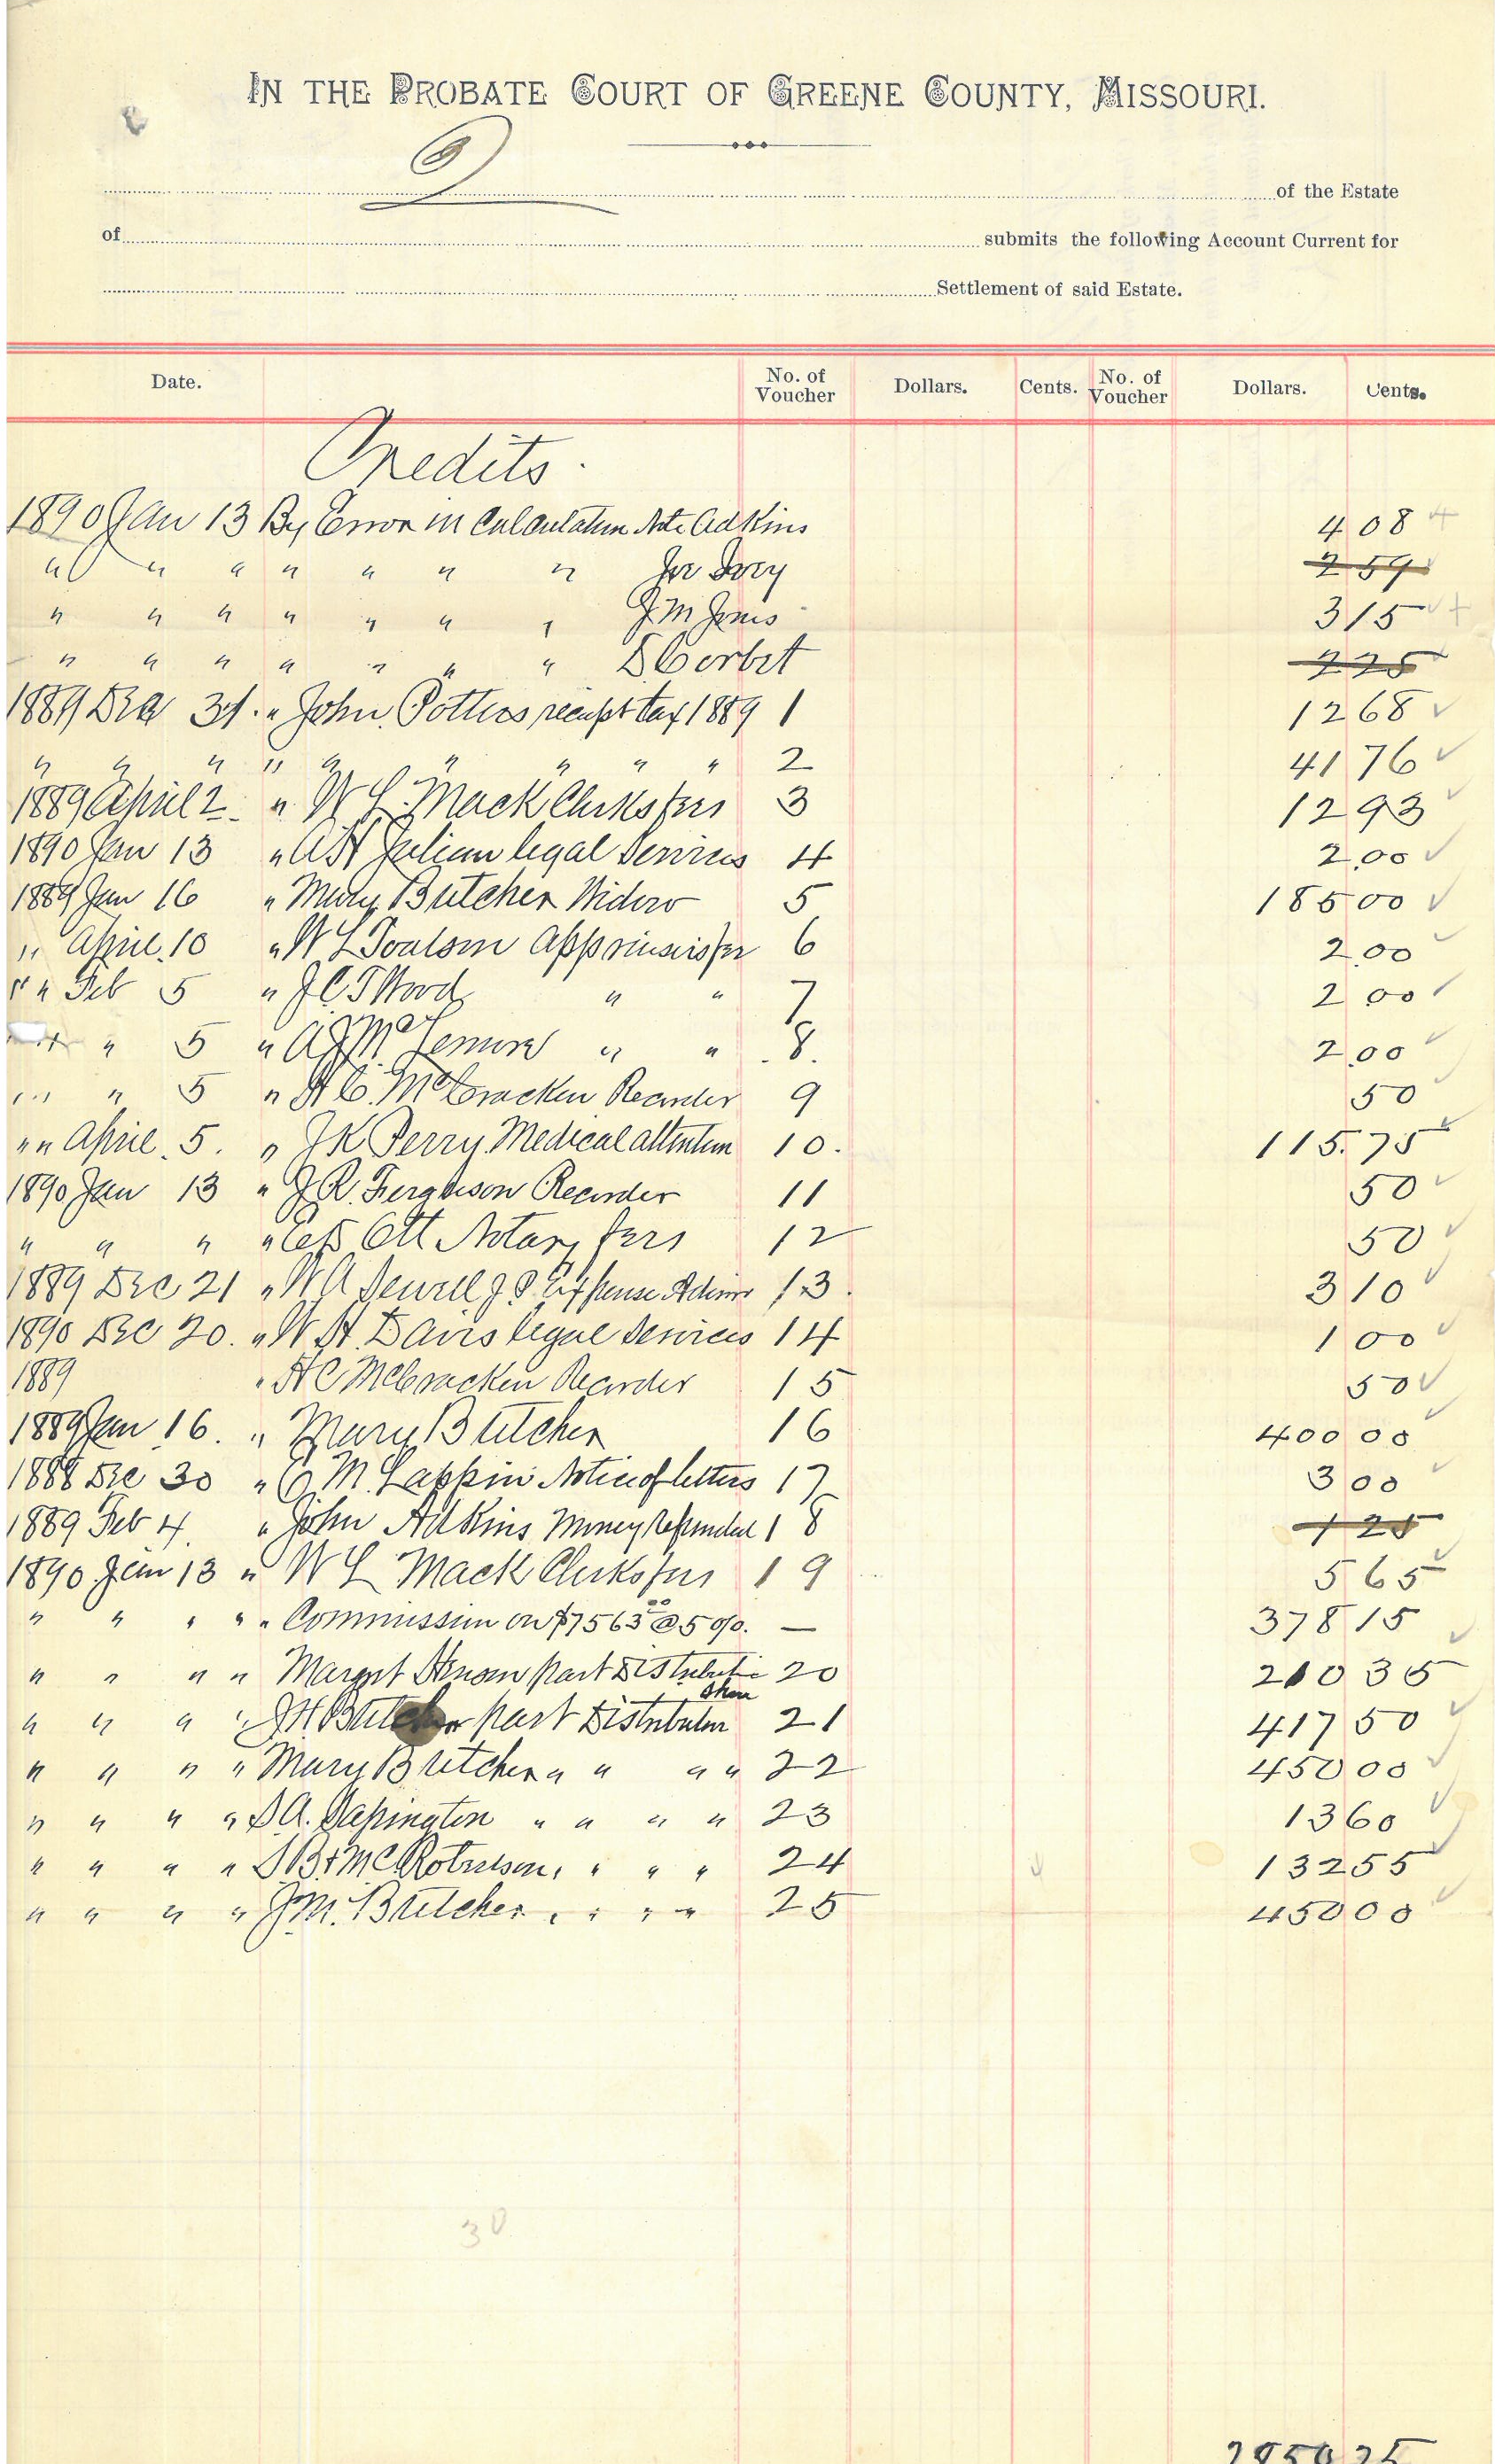 IN THE PROBATE COURT OF GREENE COUNTY, MISSOURI.
9
of the Estate
of submits the following Account Current for
Settlement of said Estate.
Date. No. of Voucher Dollars. Cents. No. of Voucher Dollars. Cents.
Credits.
1890 Jan 13 By Error in Calculation Note Adkins 4 08
" " " " " " " Joe Ivey 2 59
" " " " " " " J M Jones 3 15
" " " " " " " D Corbet 2 25
1889 Dec 31. " John Potters receipt tax 1889 1 12 68
" " " " " " " " " 2 41 76
1889 April 2 " W L Mack Clerks fees 3 12 93
1890 Jan 13 " A H Julian legal Services 4 2.00
1889 Jan 16 " Mary Butcher Widow 5 185 00
" April 10 " W L Toalson appraisers fee 6 2.00
" " Feb 5 " J C T Wood " " 7 2 00
" " 5 " A J McLemore " " 8. 2.00
" " " 5 " H C. McCracken Recorder 9 50
" " April 5. " J K Perry Medical attention 10. 115.75
1890 Jan 13 " J R. Ferguson Recorder 11 50
" " " " Ott Notary fees 12 50
1889 Dec 21 " W A Sewell J P Expense Admr 13. 3 10
1890 Dec 20. " W H Davis legal Services 14 1 00
1889 " H C McCracken Recorder 15 50
1889 Jan 16. " Mary Butcher 16 400 00
1888 Dec 30 " M. Lappin Notice of letters 17 3 00
1889 Feb 4. " John Adkins Money Refunded 18 1 25
1890 Jan 13 " W L Mack Clerks fees 19 5 65
" " " " " Commission on $7563.00 @ 5 0/0. — 378 15
" " " " Margret part Distributive 20 210 35
Share
" " " " J H Butcher part Distribution 21 417 50
" " " " Mary Butcher " " " " 22 450 00
" " " " S A. Sapington " " " " 23 13 60
" " " " S B & M C Roberson, " " " 24 132 55
" " " " J M. Butcher " " " " 25 450 00
30
2850 25